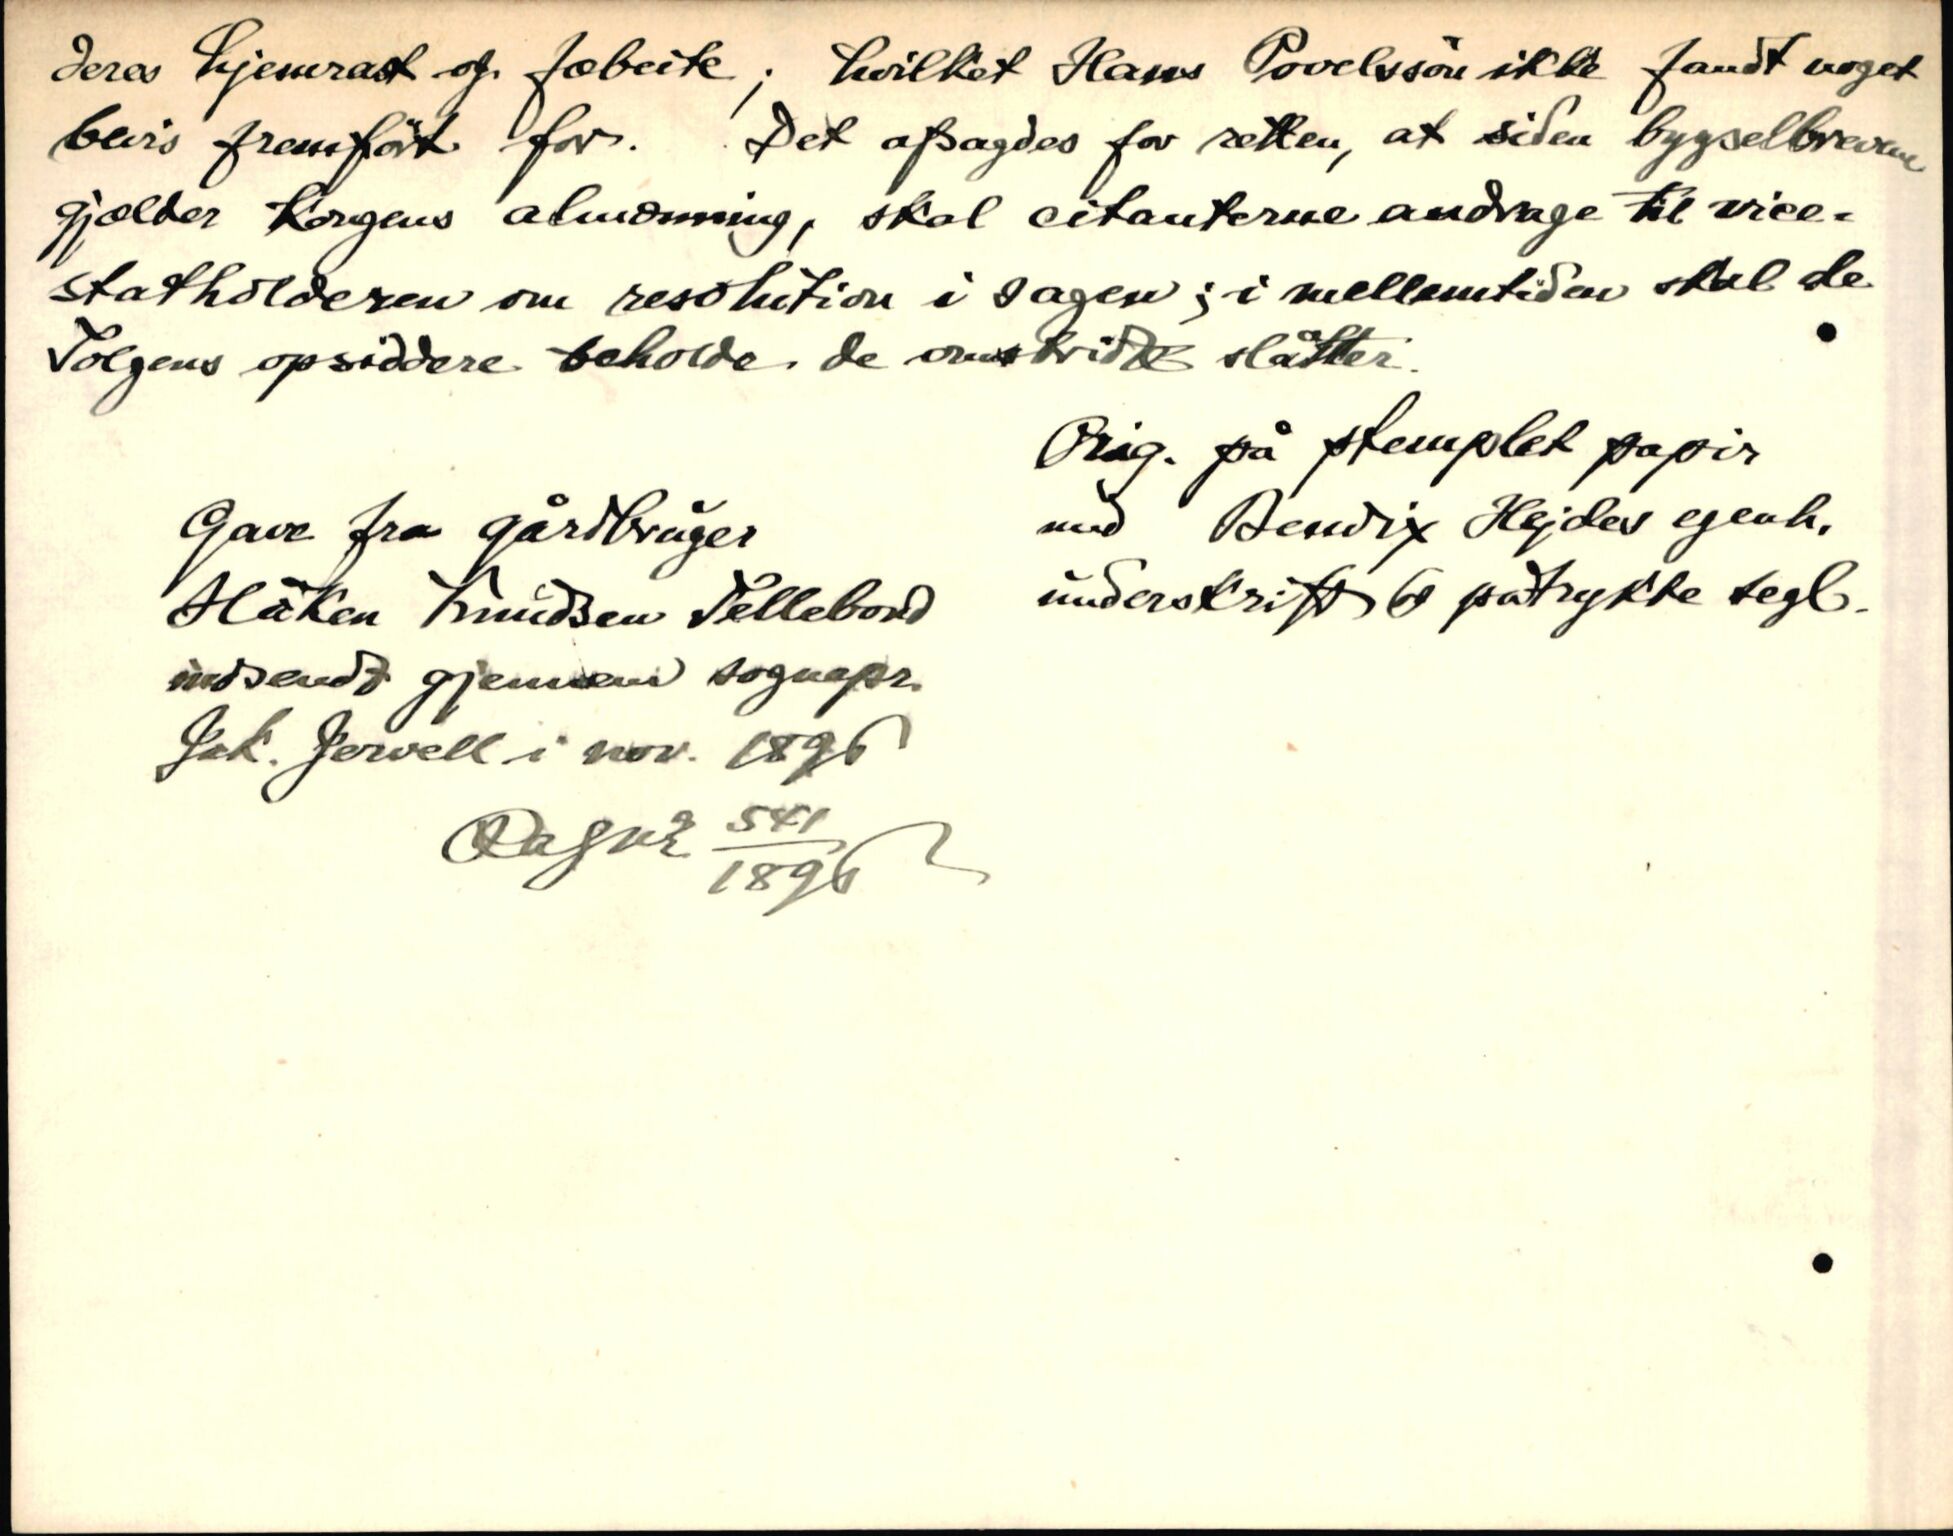 deres hjemrast og fæbeite; hvilket Hans Povelssön ikke fandt noget
bevis fremfört for. Det afsagdes for retten, at siden bygselbrevene
gjælder Kongens almænning, skal citanterne andrage til vice-
statholderen om resolution i sagen; i mellemtiden skal de
Tolgens opsiddere beholde de omstridte slåtter.
Orig. på stemplet papir
med Bendix Hejdes egenh.
underskrift og påtrykte segl.
Gave fra gårdbruger
Håken Knudsen Tellebond
indsendt gjennem sognepr.
Jak. Jervell i nov. 1896
541
1896